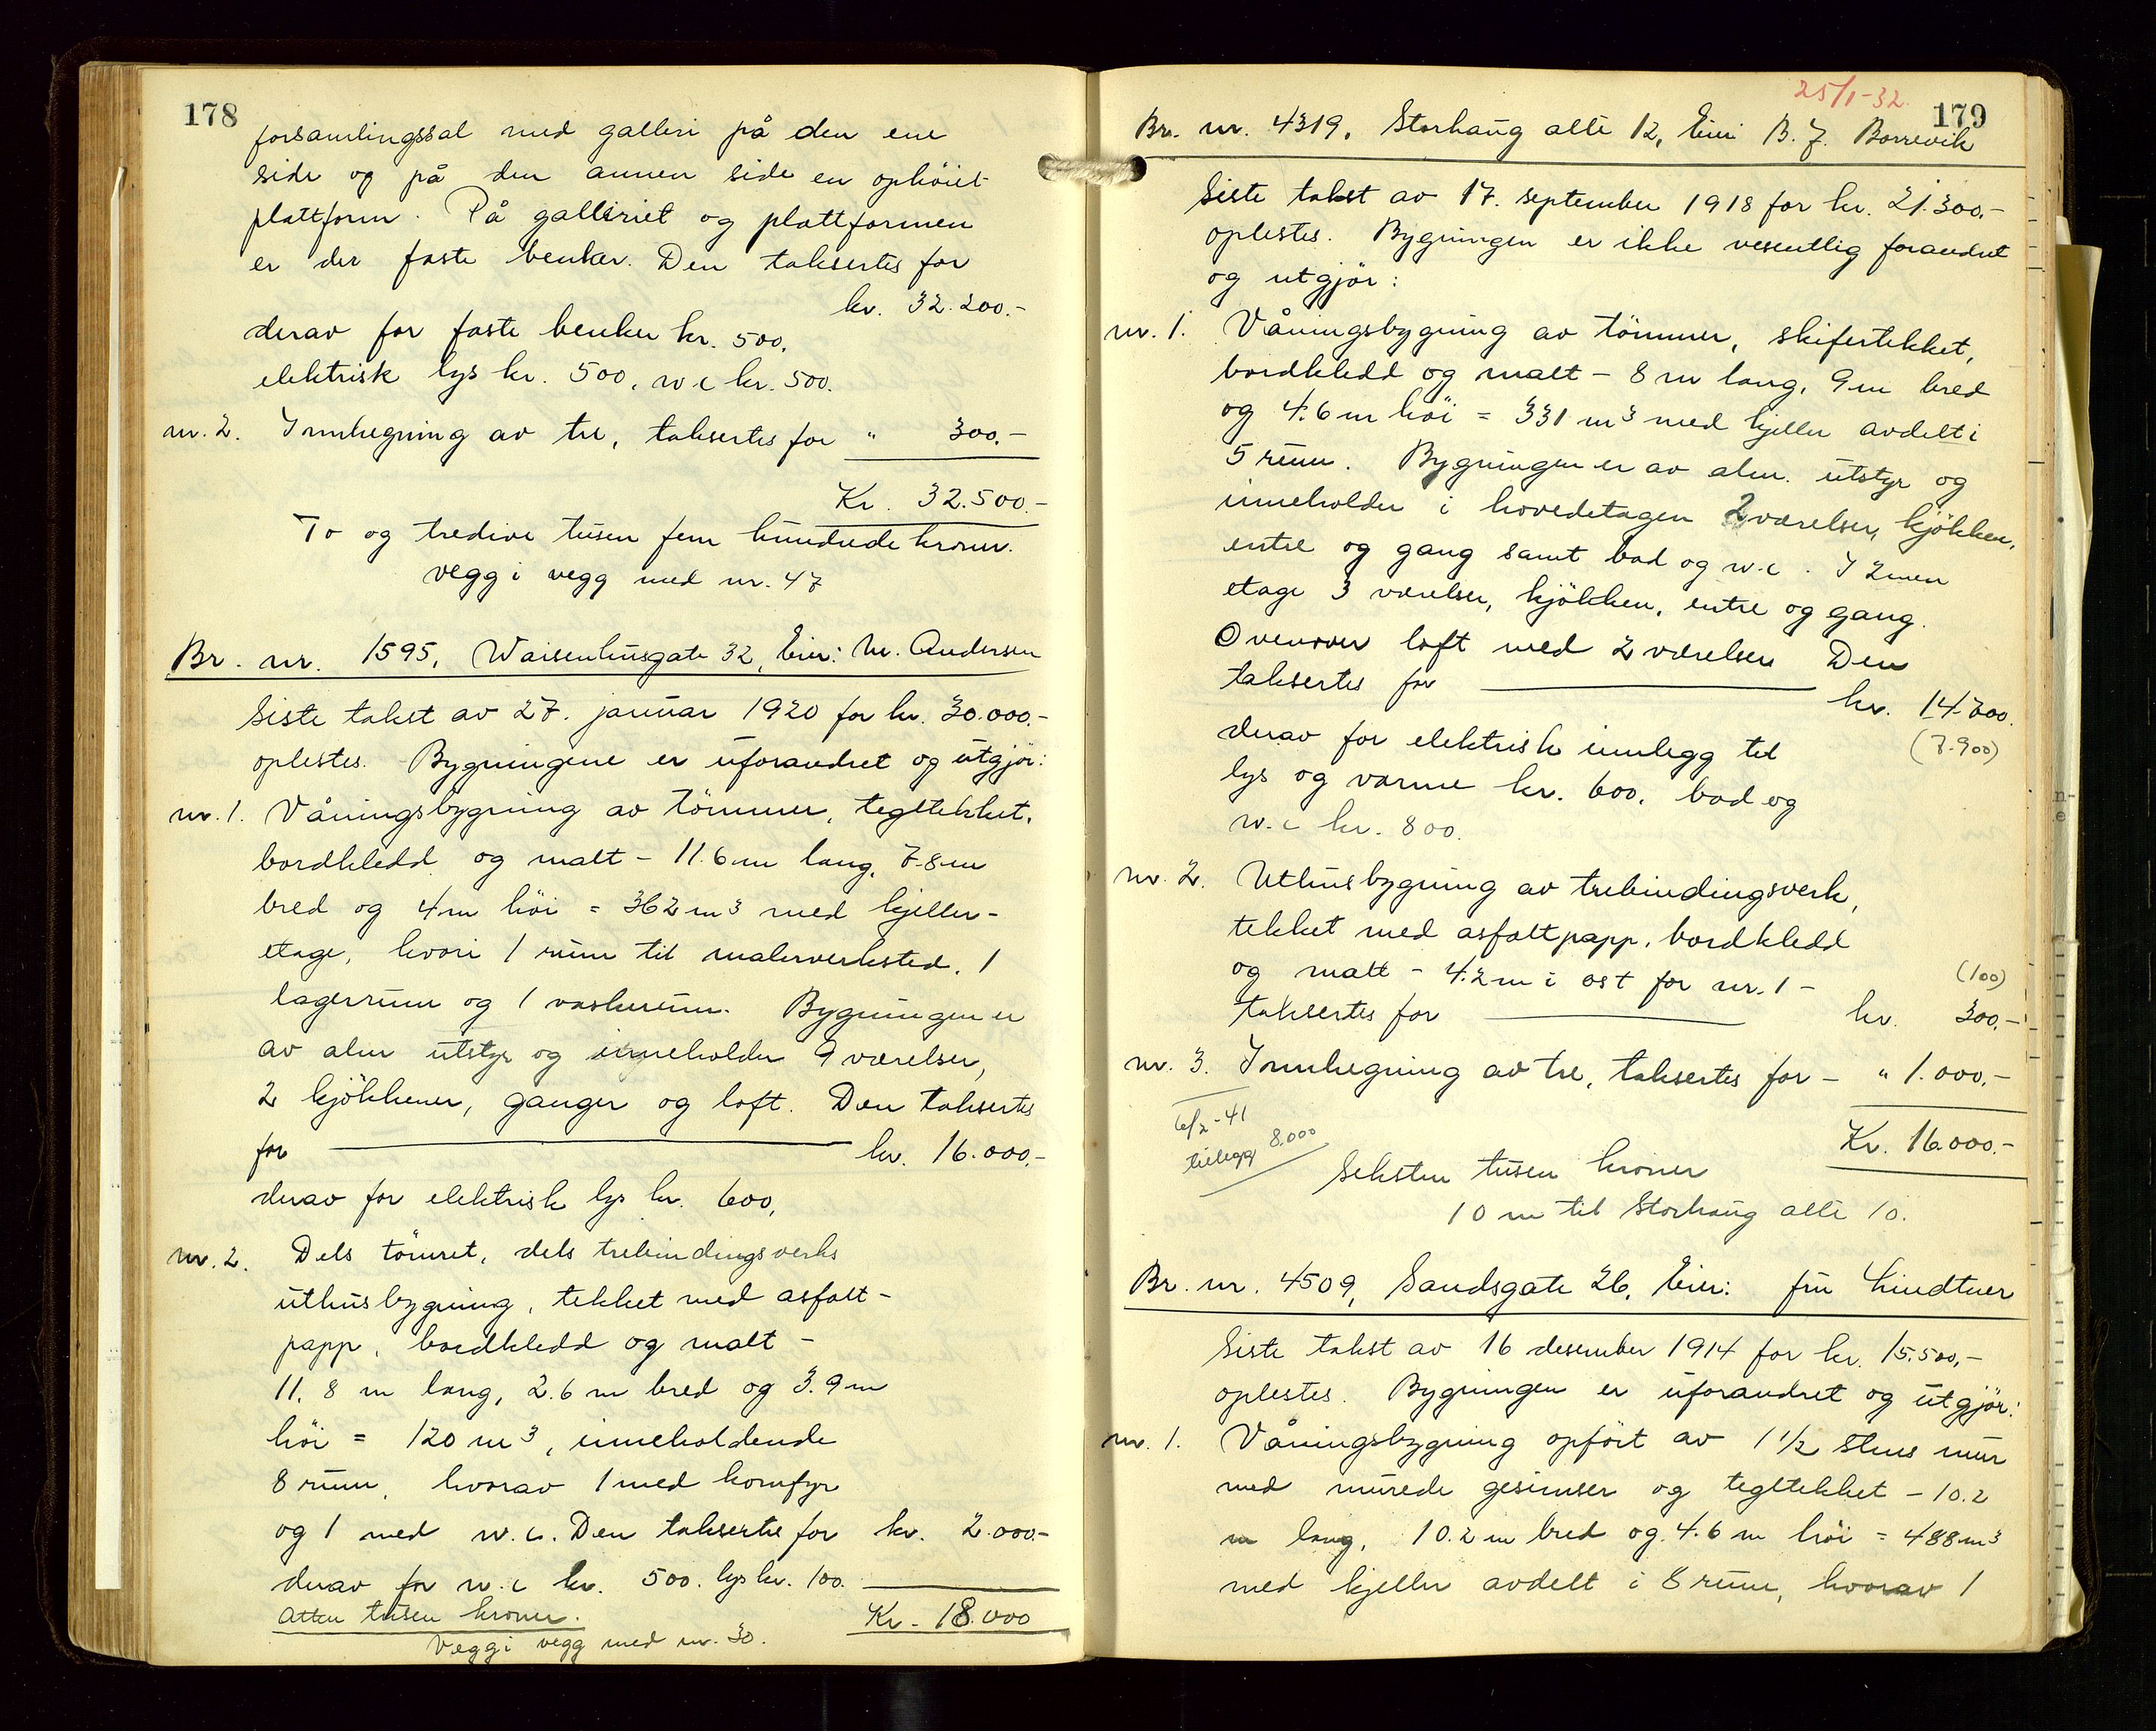 178
forsamlingssal med galleri på den ene
side og på den annen side en ophöiet
plattform. På galleriet og plattformen
er der faste benker. Den takseres for
kr. 32.200.-
derav for faste benker kr. 500.
elektrisk lys kr. 500, w c kr. 500.
nr. 2. Innhegning av tre, takseres for " 300.-
Kr. 32.500.-
To og tredive tusen fem hundrede kroner.
vegg i vegg med nr. 47
Br. nr. 1595, Waisenhusgate 32, Eier: M. Andersen
Siste takst av 27. januar 1920 for kr. 30.000.-
oplestes. Bygningene er uforandret og utgjör:
nr. 1. Våningsbygning av tömmer, tegltekket,
bordkledd og malt - 11.6 m lang, 7.8 m
bred og 4 m höi = 362 m³ med kjeller-
etage, hvori 1 rum til malerverksted, 1
lagerrum og 1 vaskerum. Bygningen er
av alm utstyr og inneholder 9 værelser,
2 kjökkener, ganger og loft. Den takseres
for kr. 16.000.-
derav for elektrisk lys kr. 600,
nr. 2. Dels tömret, dels trebindingsverks
uthusbygning, tekket med asfalt-
papp, bordkledd og malt -
11.8 m lang, 2.6 m bred og 3.9 m
höi = 120 m³, inneholdende
8 rum, hvorav 1 med komfyr
og 1 med w.c. Den takseres for kr. 2.000.-
derav for w.c kr. 500. lys kr. 100.
Atten tusen kroner. Kr. 18.000
Vegg i vegg med nr. 30.
25/1-32. 179
Br. nr. 4319, Storhaug alle 12, Eier B. J. Borrevik
Siste takst av 17. september 1918 for kr. 21.300.-
oplestes. Bygningen er ikke vesentlig forandret
og utgjör:
nr. 1. Våningsbygning av tömmer, skifertekket,
bordkledd og malt - 8 m lang, 9 m bred
og 4.6 m höi = 331 m³ med kjeller avdelt i
5 rum. Bygningen er av alm. utstyr og
inneholder i hovedetagen 2 værelser, kjökken,
entre og gang samt bad og w.c. I 2nen
etage 3 værelser, kjökken, entre og gang.
Ovenover loft med 2 værelser Den
takseres for kr. 14.700.
(7.900)
derav for elektrisk innlegg til
lys og varme kr. 600, bad og
w.c kr. 800.
nr. 2. Uthusbygning av trebindingsverk,
tekket med asfaltpapp, bordkledd
og malt - 4.2 m i öst for nr. 1 - (100)
takseres for kr. 300.-
nr. 3. Innhegning av tre, takseres for - " 1.000.-
6/2-41
tillegg 8.000
Kr. 16.000.-
Seksten tusen kroner
10 m til Storhaug alle 10.
Br. nr. 4509, Sandsgate 26, Eier: fru Lindtner
Siste takst av 16 desember 1914 for kr. 15.500.-
oplestes. Bygningen er uforandret og utgjör:
nr. 1. Våningsbygning opfört av 1 1/2 stens mur
med murede gesimser og tegltekket - 10.2
m lang, 10.2 m bred og 4.6 m höi = 488 m³
med kjeller avdelt i 8 rum, hvorav 1